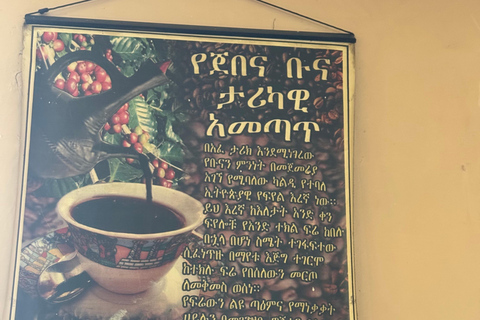 የጀበና ቡና
ታሪካዊ
አመጣጥ
በአፈ ታሪክ እንደሚነገረው
የቡናን ምንነት በመጀመሪያ
አገኘ የሚባለው ካልዲ የተባለ
ኢትዮጵያዊ የፍየል እረኛ ነው።
ይህ እረኛ ከእለታት አንድ ቀን
ፍየሎቹ የአንድ ተክል ፍሬ ከበሉ
በኋላ በሆነ ስሜት ተገፋፍተው
ሲፈነጥዙ በማየቱ እጅግ ተገርሞ
ከተክሉ ፍሬ የበሰለውን መርጦ
ለመቅመስ ወሰነ።
የፍሬውን ልዩ ጣዕምና የማነቃቃት